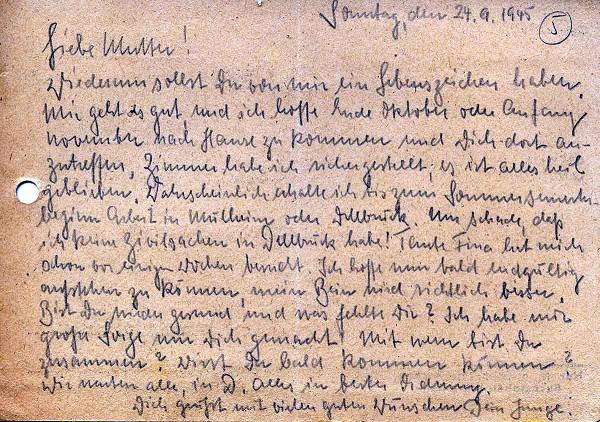 Sonntag, den 24.9.1945
5
Liebe Mutter!
Wiederum sollst Du von mir ein Lebenszeichen haben.
Mir geht es gut und ich hoffe Ende Oktober oder Anfang
November nach Hause zu kommen und Dich dort an-
zutreffen. Zimmer habe ich sichergestellt, es ist alles heil
geblieben. Wahrscheinlich erhalte ich bis zum Sommersemester-
beginn Arbeit in Mülheim oder Dellbrück. Nur schade, daß
ich keine Zivilsachen in Dellbrück habe! Tante Fina hat mich
schon vor einigen Wochen besucht. Ich hoffe nun bald endgültig
aufstehen zu können, mein Bein wird sichtlich besser.
Bist Du wieder gesund, und was fehlte Dir? Ich habe mir
große Sorge um Dich gemacht! Mit wem bist Du
zusammen? Wirst Du bald kommen können?
Wir warten alle, in D. alles in bester Ordnung.
Dich grüßt mit vielen guten Wünschen Dein Junge.